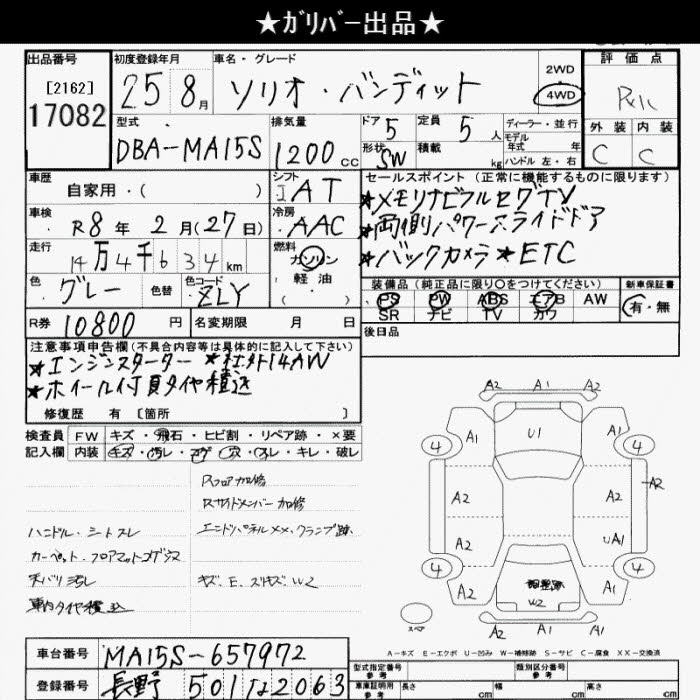 ★ガリバー出品★
出品番号
[2162]
17082
初度登録年月
25 8月
車名・グレード
ソリオ・バンディット
2WD
4WD
評価点
外装 内装
C C
型式
DBA-MA15S
排気量
1200cc
ドア 5
形状 SW
定員 5人
積載 kg
ディーラー・並行
モデル年式 年
ハンドル 左・右
車歴
自家用・( )
シフト
IAT
車検
R8年 2月(27日)
冷房
AAC
走行
14万4千634km
燃料
ガソリン
軽油
( )
色
グレー
色替
色コード
ZLY
セールスポイント (正常に機能するものに限ります)
★メモリナビフルセグTV
★両側パワースライドドア
★バックカメラ★ETC
装備品(純正品に限り○をつけてください)
PS PW ABS エアB AW
SR ナビ TV カワ
新車保証書
有・無
R券 10800円
名変期限 月 日
後日品
注意事項申告欄(不具合内容等は具体的に記入して下さい)
★エンジンスターター ★社外14AW
★ホイール付夏タイヤ積込
修復歴 有 〔箇所 〕
検査員記入欄
FW キズ・飛石・ヒビ割・リペア跡・×要
内装 キズ・汚レ・コゲ・穴・スレ・キレ・破レ
Rフロア加修
Rサイドメンバー加修
ハンドル・シートスレ
エンドパネルXX、クランプ跡、
カーペット・フロアマットコゲ穴ス
天バリ汚レ
キズ、E、ズリキズ、W2
車内タイヤ積込
A2 A1 A2
4 A1 U1 A1 4
A2 A2 A2
A2 UA1
4 A2 調整跡 W2 A1 4
A2 A1 A1
スペア
A-キズ E-エクボ U-凹み W-補修跡 S-サビ C-腐食 XX-交換済
車台番号
MA15S-657972
登録番号
長野 501 た 2063
型式指定番号 参考
類別区分番号 参考
車庫証明用 参考
長さ cm 幅 cm 高さ cm